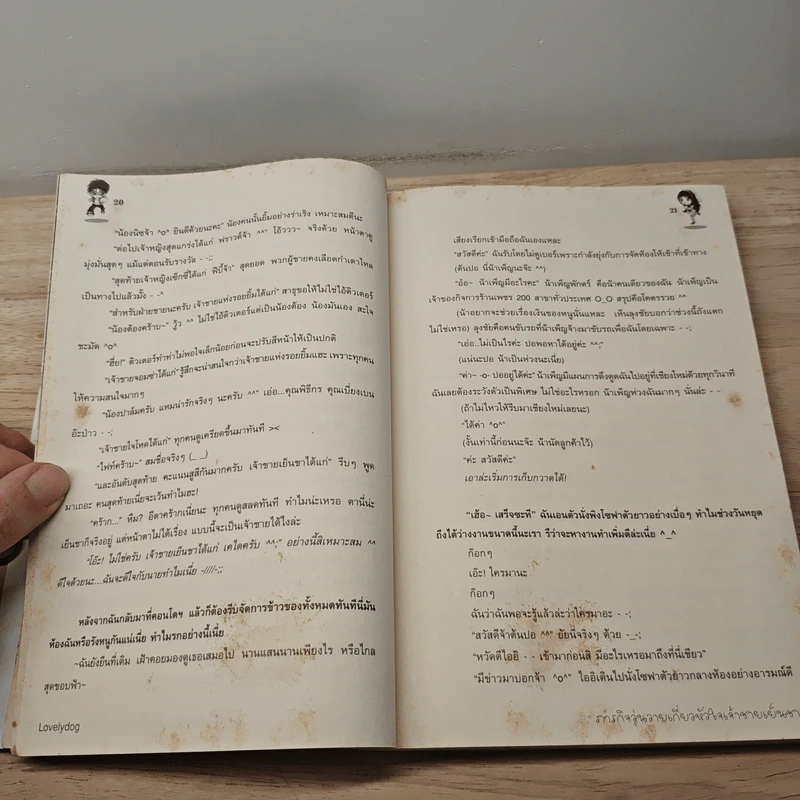 20
"น้องนิชจ้า ^o^ ยินดีด้วยนะคะ" น้องคนนั้นยิ้มอย่างร่าเริง เหมาะสมดีนะ
"ต่อไปเจ้าหญิงสุดแกร่งได้แก่ ฟราวด์จ้า ^^" โอ้ววว~ จริงด้วย หน้าตาดู
มุ่งมั่นสุดๆ แม้แต่ตอนรับรางวัล - -;;
"สุดท้ายเจ้าหญิงเซ็กซี่ได้แก่ พีบี้จ้า" สุดยอด พวกผู้ชายคงเลือดกำเดาไหล
เป็นทางไปแล้วมั้ง - -^
"สำหรับฝ่ายชายนะครับ เจ้าชายแห่งรอยยิ้มได้แก่" สาธุขอให้ไม่ใช่ไอ้ติวเตอร์
"น้องต้องคร้าบ~" รู้ว ^^ ไม่ใช่ไอ้ติวเตอร์แต่เป็นน้องต้อง น้องมันเอง สะใจ
ชะมัด ^o^
"ฮึ่ย!" ติวเตอร์ทำท่าไม่พอใจเล็กน้อยก่อนจะปรับสีหน้าให้เป็นปกติ
"เจ้าชายจอมซ่าได้แก่" รู้สึกจะน่าสนใจกว่าเจ้าชายแห่งรอยยิ้มแฮะ เพราะทุกคน
ให้ความสนใจมากๆ
"น้องปาล์มครับ แหมน่ารักจริงๆ นะครับ ^^" เอ่อ...คุณพิธีกร คุณเบี่ยงเบน
อ๊ะป่าว - -;
"เจ้าชายใจโหดได้แก่" ทุกคนดูเครียดขึ้นมาทันที ><
"ไฟท์คร้าบ~" สมชื่อจริงๆ (_ _)
"และอันดับสุดท้าย คะแนนสูสีกันมากครับ เจ้าชายเย็นชาได้แก่" รีบๆ พูด
มาเถอะ คนสุดท้ายเนี่ยจะเว้นทำไมฮะ!
"คร้าก..." หืม? อีตาคร้ากเนี่ยนะ ทุกคนดูสลดทันที ทำไมน่ะเหรอ ตานี่น่ะ
เย็นชาก็จริงอยู่ แต่หน้าตาไม่ได้เรื่อง แบบนี้จะเป็นเจ้าชายได้ไงล่ะ
"โอ๊ะ! ไม่ใช่ครับ เจ้าชายเย็นชาได้แก่ เคไดครับ ^^;" อย่างนี้สิเหมาะสม ^^
ดีใจด้วยนะ...ฉันจะดีใจกับนายทำไมเนี่ย -////-;;
หลังจากฉันกลับมาที่คอนโดฯ แล้วก็ต้องรีบจัดการข้าวของทั้งหมดทันทีนี่มัน
ห้องฉันหรือรังหนูกันแน่เนี่ย ทำไมรกอย่างนี้เนี่ย
~ฉันยังยืนที่เดิม เฝ้าคอยมองดูเธอเสมอไป นานแสนนานเพียงไร หรือไกล
สุดขอบฟ้า~
Lovelydog
21
เสียงเรียกเข้ามือถือฉันเองแหละ
"สวัสดีค่ะ" ฉันรับโดยไม่ดูเบอร์เพราะกำลังยุ่งกับการจัดห้องให้เข้าที่เข้าทาง
(ต้นปอ นี่น้าเพ็ญนะจ๊ะ ^^)
"อ๋อ~ น้าเพ็ญมีอะไรคะ" น้าเพ็ญพักตร์ คือน้าคนเดียวของฉัน น้าเพ็ญเป็น
เจ้าของกิจการร้านเพชร 200 สาขาทั่วประเทศ O_O สรุปคือโคตรรวย ^^
(น้าอยากจะช่วยเรื่องเงินของหนูนั่นแหละ เห็นลุงชัยบอกว่าช่วงนี้ถังแตก
ไม่ใช่เหรอ) ลุงชัยคือคนขับรถที่น้าเพ็ญจ้างมาขับรถเพื่อฉันโดยเฉพาะ - -;
"เอ่อ..ไม่เป็นไรค่ะ ปอพอหาได้อยู่ค่ะ ^^;"
(แน่นะปอ น้าเป็นห่วงนะเนี่ย)
"ค่า~ -o- ปออยู่ได้ค่ะ" น้าเพ็ญมีแผนการดึงดูดฉันไปอยู่ที่เชียงใหม่ด้วยทุกวินาที
ฉันเลยต้องระวังตัวเป็นพิเศษ ไม่ใช่อะไรหรอก น้าเพ็ญห่วงฉันมากๆ นั่นล่ะ - -
(ถ้าไม่ไหวให้รีบมาเชียงใหม่เลยนะ)
"ได้ค่า ^o^"
(งั้นเท่านี้ก่อนนะจ๊ะ น้านัดลูกค้าไว้)
"ค่ะ สวัสดีค่ะ"
เอาล่ะเริ่มการเก็บกวาดได้!
"เฮ้อ~ เสร็จซะที" ฉันเอนตัวนั่งพิงโซฟาตัวยาวอย่างเบื่อๆ ทำไมช่วงวันหยุด
ถึงได้ว่างงานขนาดนี้นะเรา รึว่าจะหางานทำเพิ่มดีล่ะเนี่ย ^_^
ก๊อกๆ
เอ๊ะ! ใครมานะ
ก๊อกๆ
ฉันว่าฉันพอจะรู้แล้วล่ะว่าใครมาอะ - -;
"สวัสดีจ้าต้นปอ ^^" ยัยนี่จริงๆ ด้วย -_-;
"หวัดดีไออิ - - เข้ามาก่อนสิ มีอะไรเหรอมาถึงที่นี่เชียว"
"มีข่าวมาบอกจ้า ^o^" ไออิเดินไปนั่งโซฟาตัวยาวกลางห้องอย่างอารมณ์ดี
ภารกิจวุ่นวายเกี่ยวหัวใจเจ้าชายเย็นชา